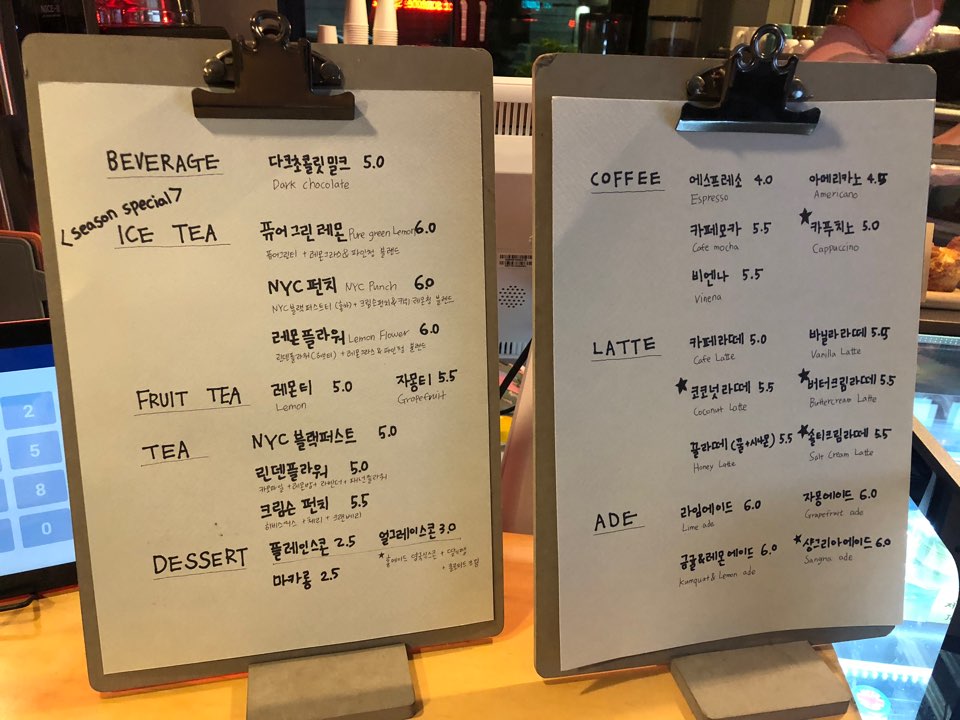 BEVERAGE
다크초콜릿밀크 5.0
Dark chocolate
<season special>
ICE TEA
퓨어그린레몬 Pure green Lemon 6.0
퓨어그린티 + 레몬그라스& 파인청 블렌드
NYC펀치 NYC Punch 6.0
NYC블랙퍼스트티
레몬플라워 Lemon Flower 6.0
린덴플라워(허브티) + 레몬그라스&파인청 블렌드
FRUIT TEA
레몬티 5.0 자몽티 5.5
Lemon Grapefruit
TEA
NYC 블랙퍼스트 5.0
린덴플라워 5.0
카모마일 + 레몬밤 + 라벤더 +
크림슨 펀치 5.5
히비스커스 + 체리 + 크랜베리
DESSERT
플레인스콘 2.5 얼그레이스콘 3.0
마카롱 2.5
COFFEE
에스프레소 4.0 아메리카노 4.5
Espresso Americano
카페모카 5.5 ★카푸치노 5.0
Cafe mocha Cappuccino
비엔나 5.5
Vinena
LATTE
카페라떼 5.0 바닐라라떼 5.5
Cafe Latte Vanilla Latte
★코코넛라떼 5.5 ★버터크림라떼 5.5
Coconut Latte Buttercream Latte
꿀라떼 (꿀+시나몬) 5.5 ★솔티크림라떼 5.5
Honey Latte Salt Cream Latte
ADE
라임에이드 6.0 자몽에이드 6.0
Lime ade Grapefruit ade
금귤&레몬에이드 6.0 ★샹그리아에이드 6.0
Kumquat & Lemon ade Sangria ade
2
5
8
0